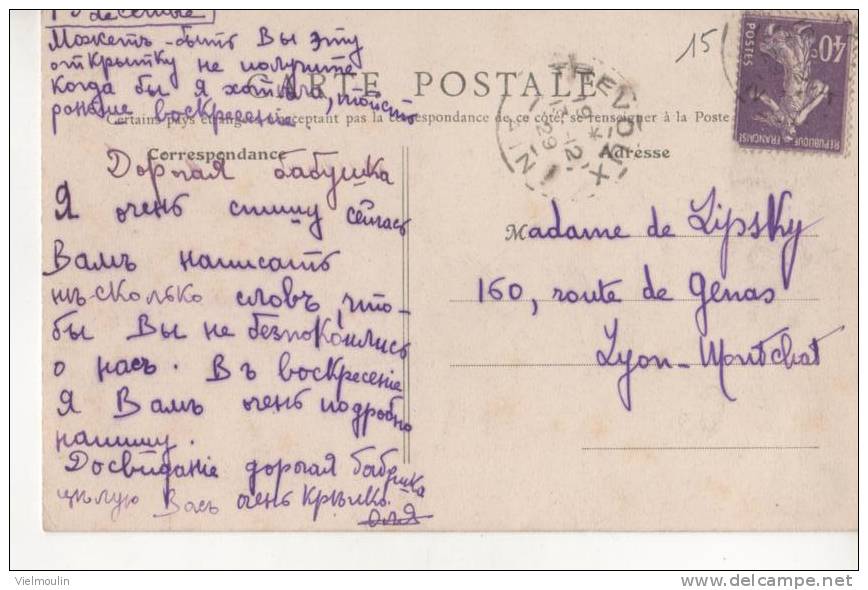 décembre
Можетъ-быть Вы эту
открытку не получите
когда бы я хотѣла, тоесть
раньше воскресенiе
CARTE POSTALE
Certains pays étrangers n'acceptant pas la correspondance de ce côté, se renseigner à la Poste
Correspondance
Adresse
Дорогая бабушка
Я очень спишу сейчасъ
Вамъ написать
нѣсколько словъ, что-
бы Вы не безпокоились
о насъ. Въ воскресенiе
я Вамъ очень подробно
напишу.
Досвиданiе дорогая бабушка
цѣлую Васъ очень крѣпко.
Оля
Madame de Lipsky
160, route de Genas
Lyon-Montchat
15
TREVOUX
19 *
13-12
29
AIN
POSTES
40c
REPUBLIQUE FRANÇAISE
Vielmoulin
delcampe.net